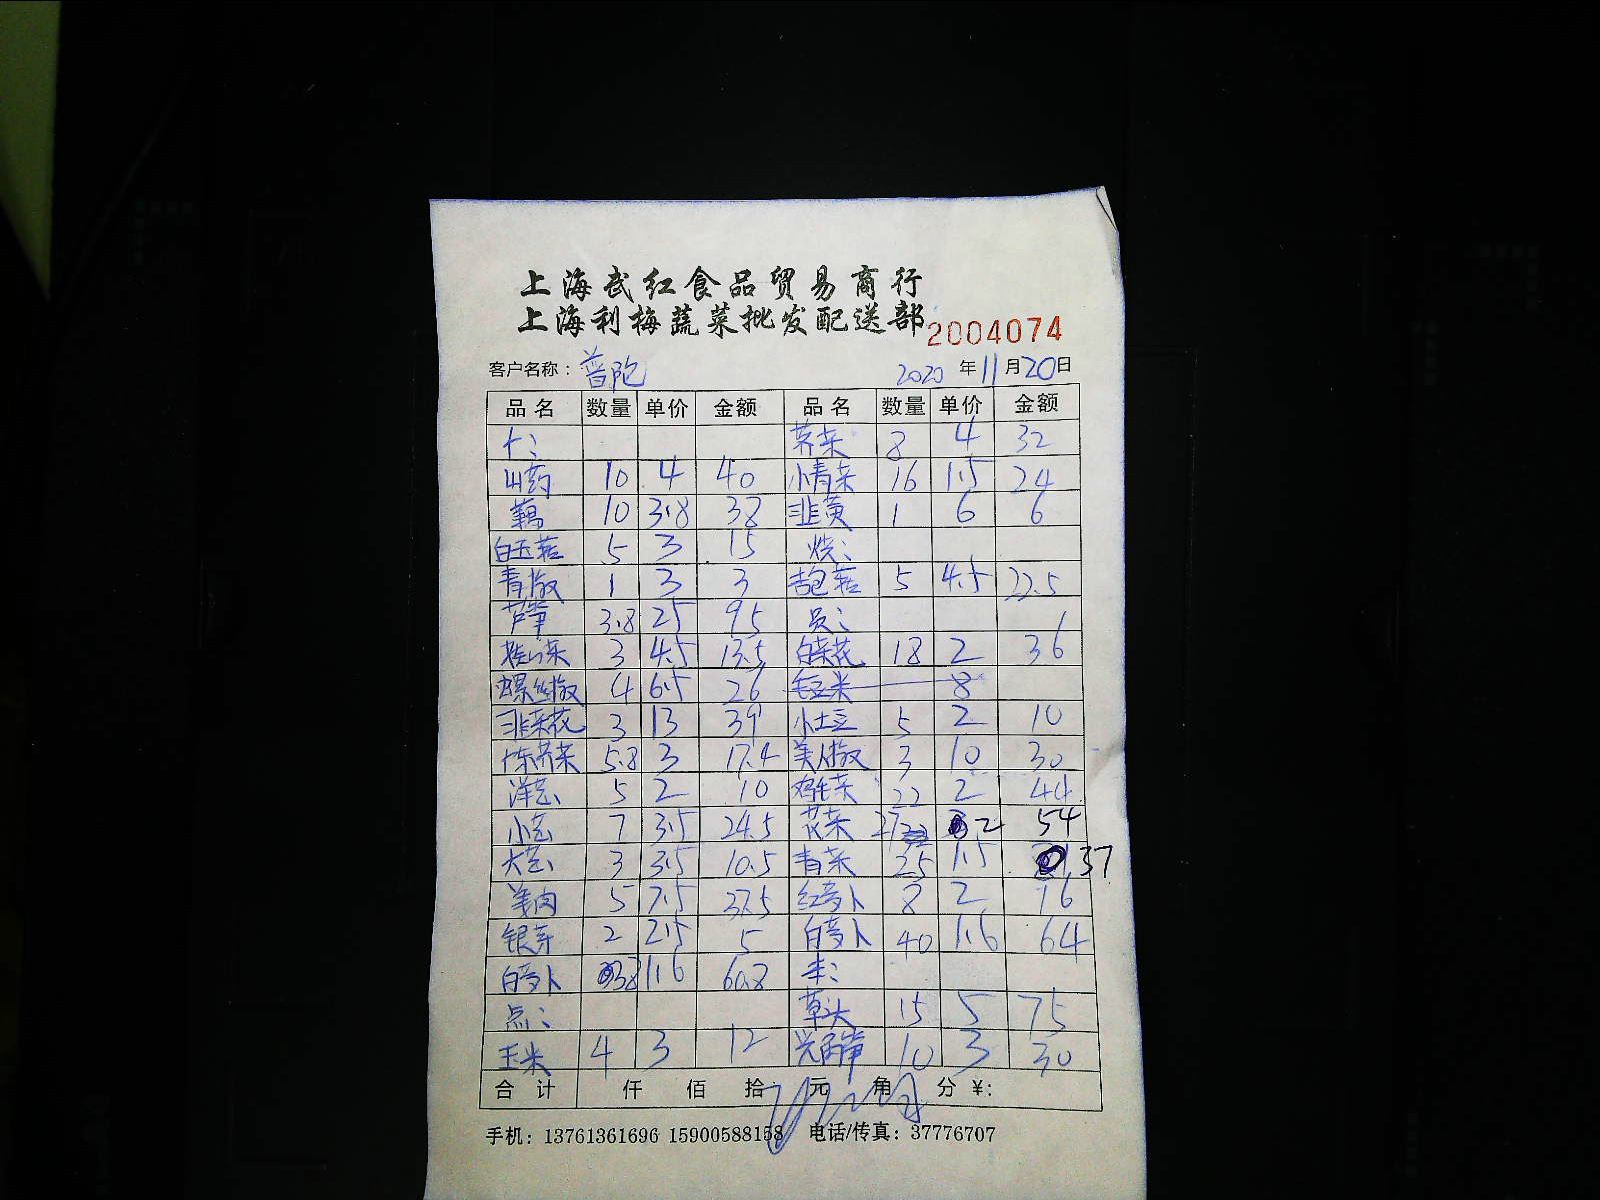 上海武红食品贸易商行
上海利梅蔬菜批发配送部 2004074
客户名称：普陀 2020年11月20日
品名 数量 单价 金额 品名 数量 单价 金额
荠菜 8 4 32
山药 10 4 40 小青菜 16 1.5 24
藕 10 3.8 38 韭黄 1 6 6
白玉菇 5 3 15 烧：
青椒 1 3 3 包菇 5 4.5 22.5
芦笋 3.8 25 95 员：
3 4.5 13.5 白菜花 18 2 36
螺丝椒 4 6.5 26 毛豆米 8
韭菜花 3 13 39 小土豆 5 2 10
荠菜 5.8 3 17.4 美人椒 3 10 30
洋芝 5 2 10 鸡毛菜 22 2 44
小芝 7 3.5 24.5 花菜 27 2 54
大芝 3 3.5 10.5 青菜 25 1.5 37
5 7.5 37.5 红萝卜 8 2 16
银芽 2 2.5 5 白萝卜 40 1.6 64
白萝卜 38 1.6 60.8
点： 草头 15 5 75
玉米 4 3 12 10 3 30
合计 仟 佰 拾 元 角 分 ¥:
手机：13761361696 15900588158 电话/传真：37776707